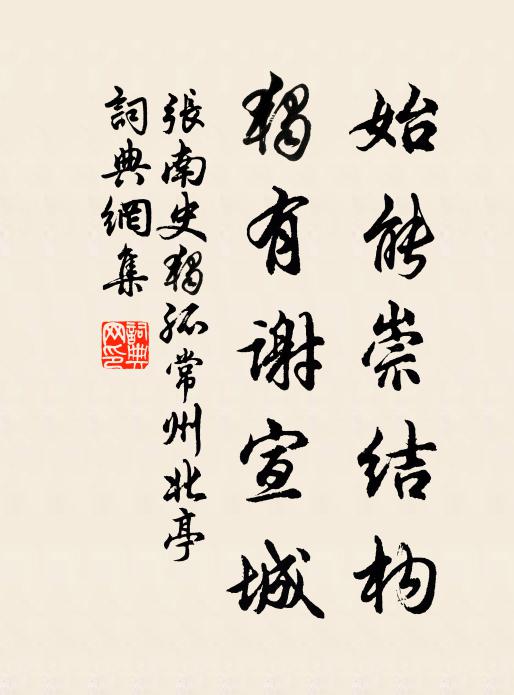 始能崇結构
獨有謝宣城
張南史獨孤常州北亭
詞典網集
詞典网印